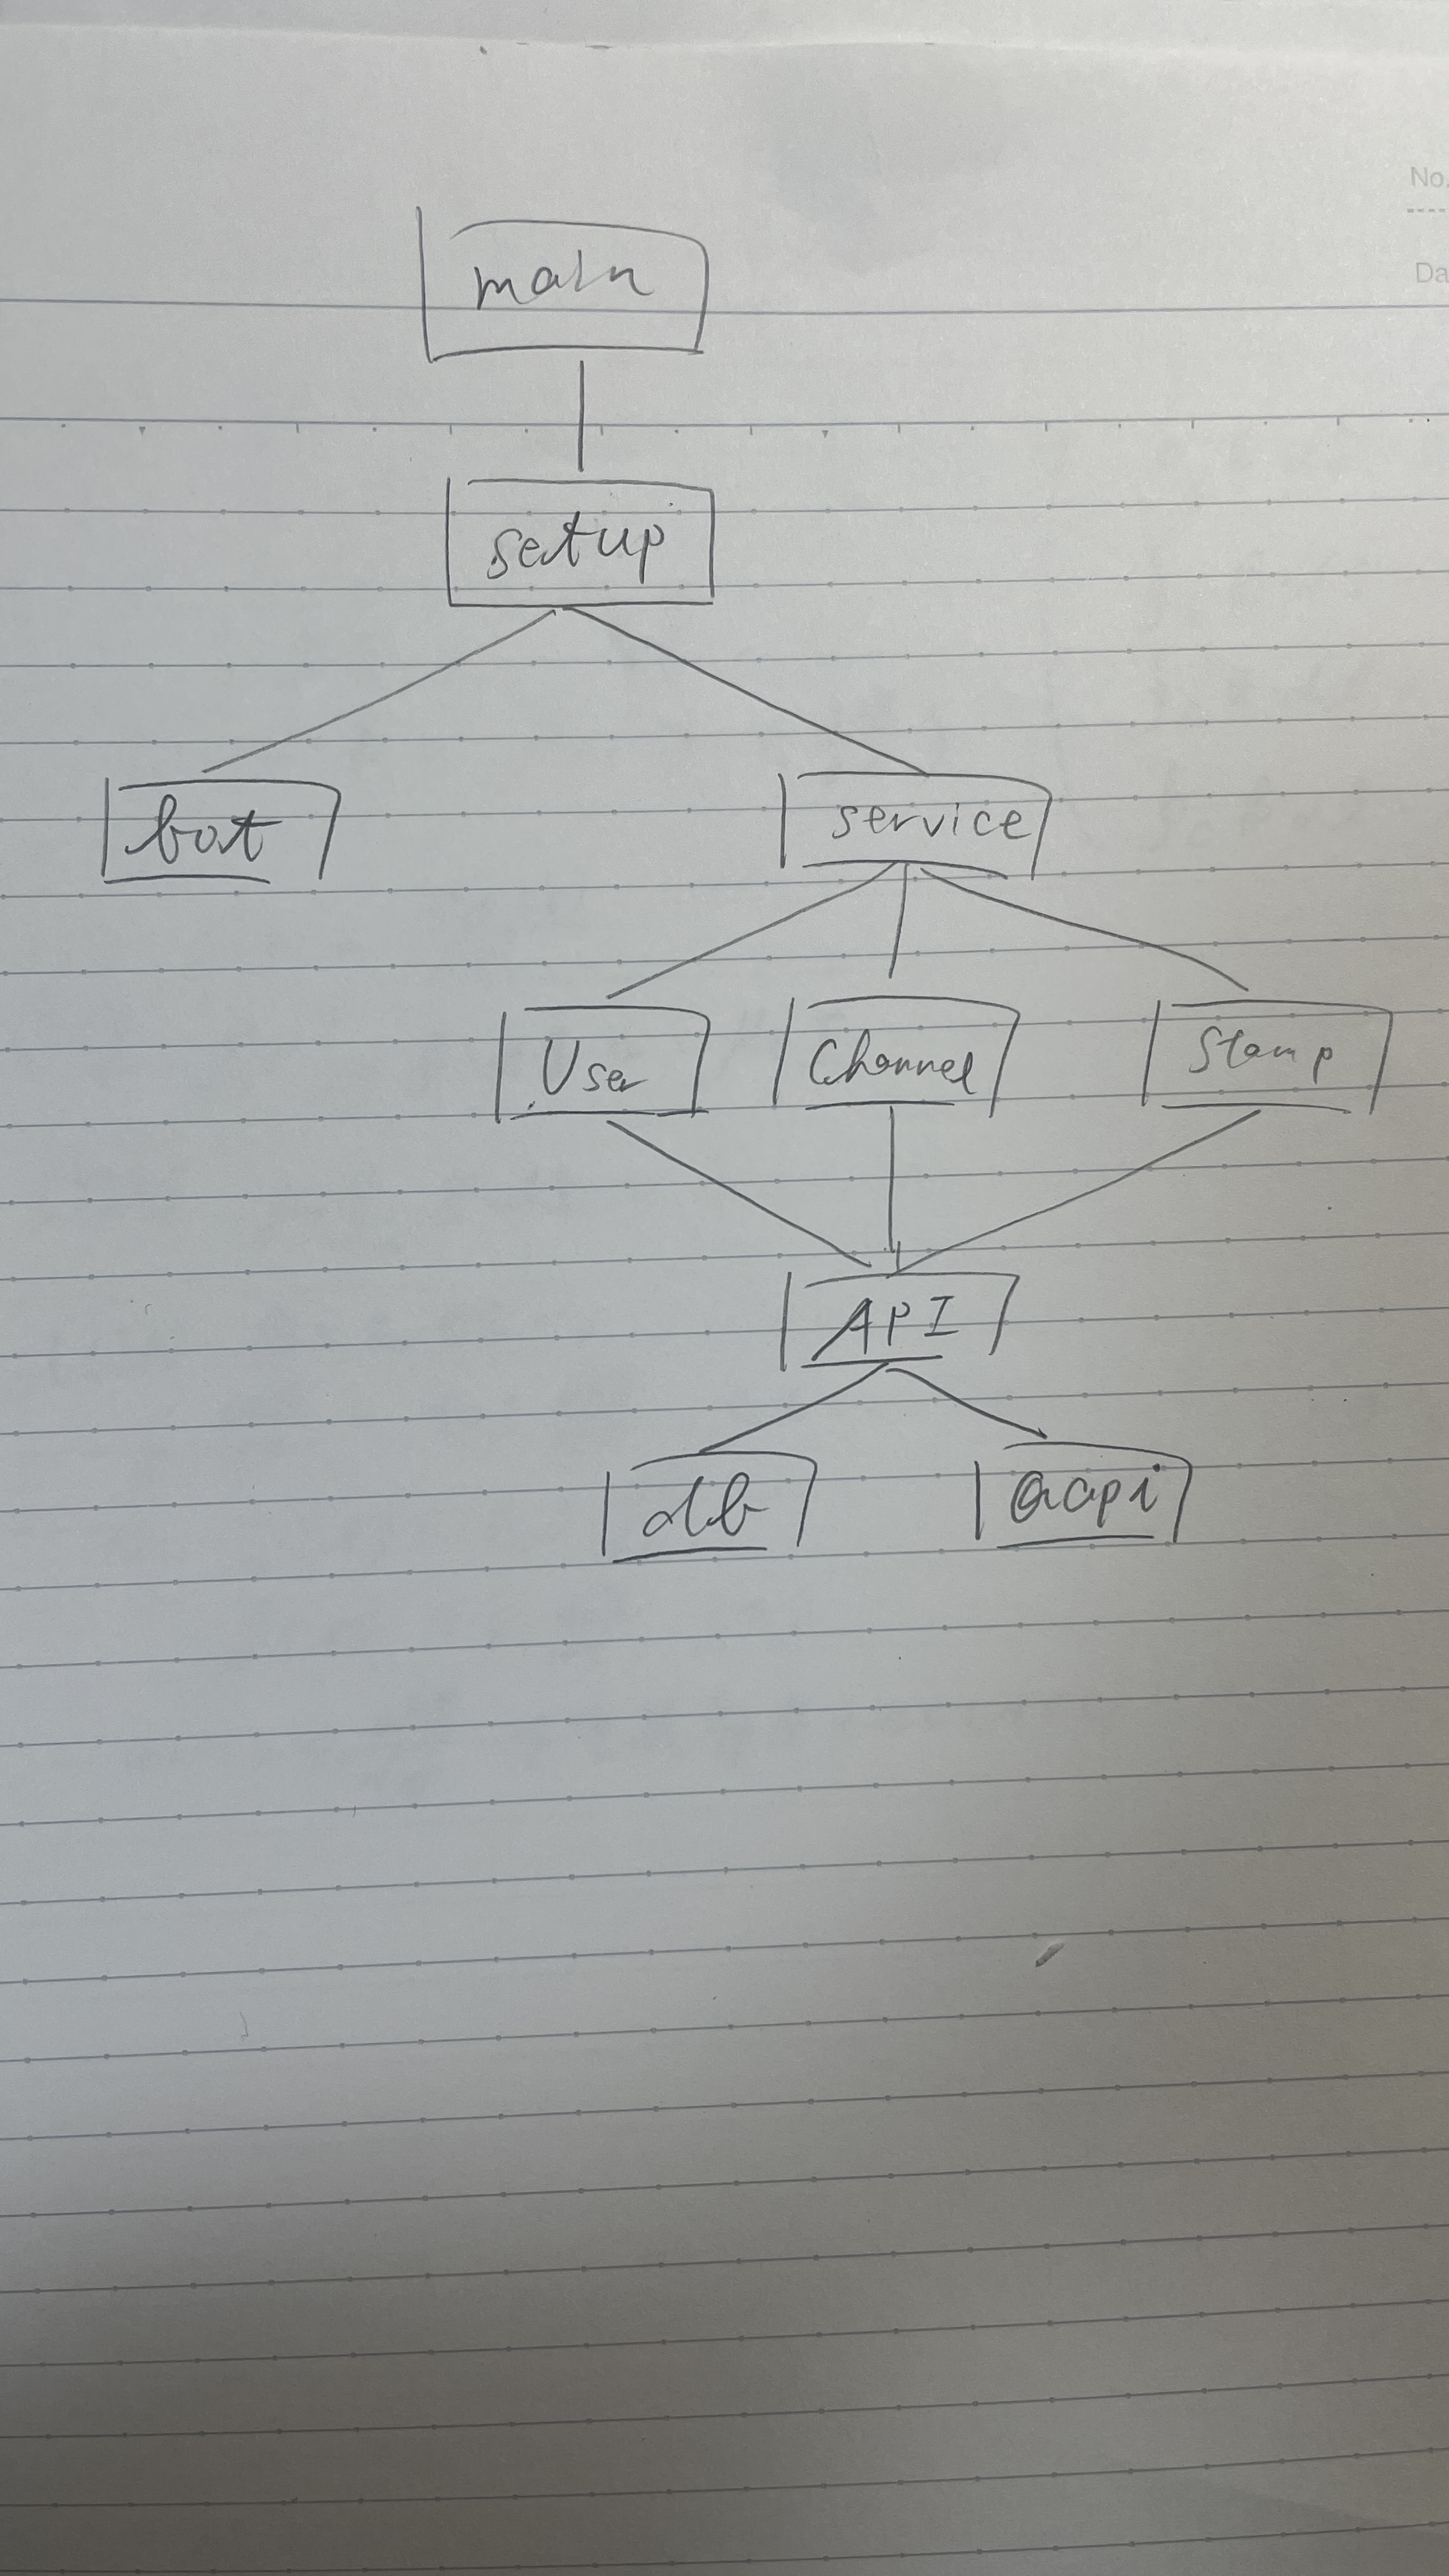 No.
Da
main
setup
bot
service
User
Channel
Stamp
API
db
qapi